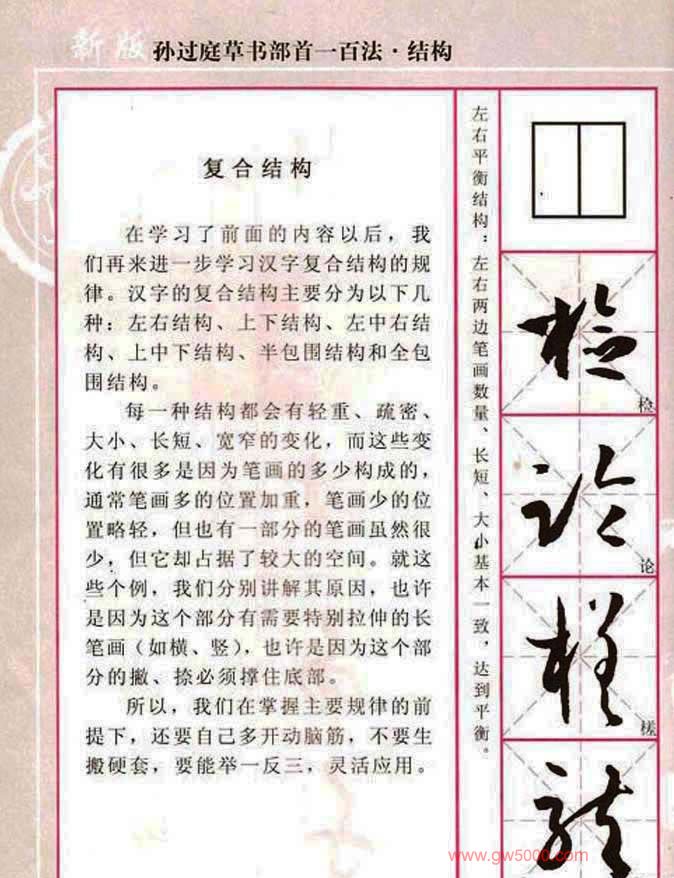 新版 孙过庭草书部首一百法·结构
复合结构
在学习了前面的内容以后，我
们再来进一步学习汉字复合结构的规
律。汉字的复合结构主要分为以下几
种：左右结构、上下结构、左中右结
构、上中下结构、半包围结构和全包
围结构。
每一种结构都会有轻重、疏密、
大小、长短、宽窄的变化，而这些变
化有很多是因为笔画的多少构成的，
通常笔画多的位置加重，笔画少的位
置略轻，但也有一部分的笔画虽然很
少，但它却占据了较大的空间。就这
些个例，我们分别讲解其原因，也许
是因为这个部分有需要特别拉伸的长
笔画（如横、竖），也许是因为这个部
分的撇、捺必须撑住底部。
所以，我们在掌握主要规律的前
提下，还要自己多开动脑筋，不要生
搬硬套，要能举一反三，灵活应用。
左右平衡结构：左右两边笔画数量、长短、大小基本一致，达到平衡。
检
检
论
论
槎
槎
www.gw5000.com